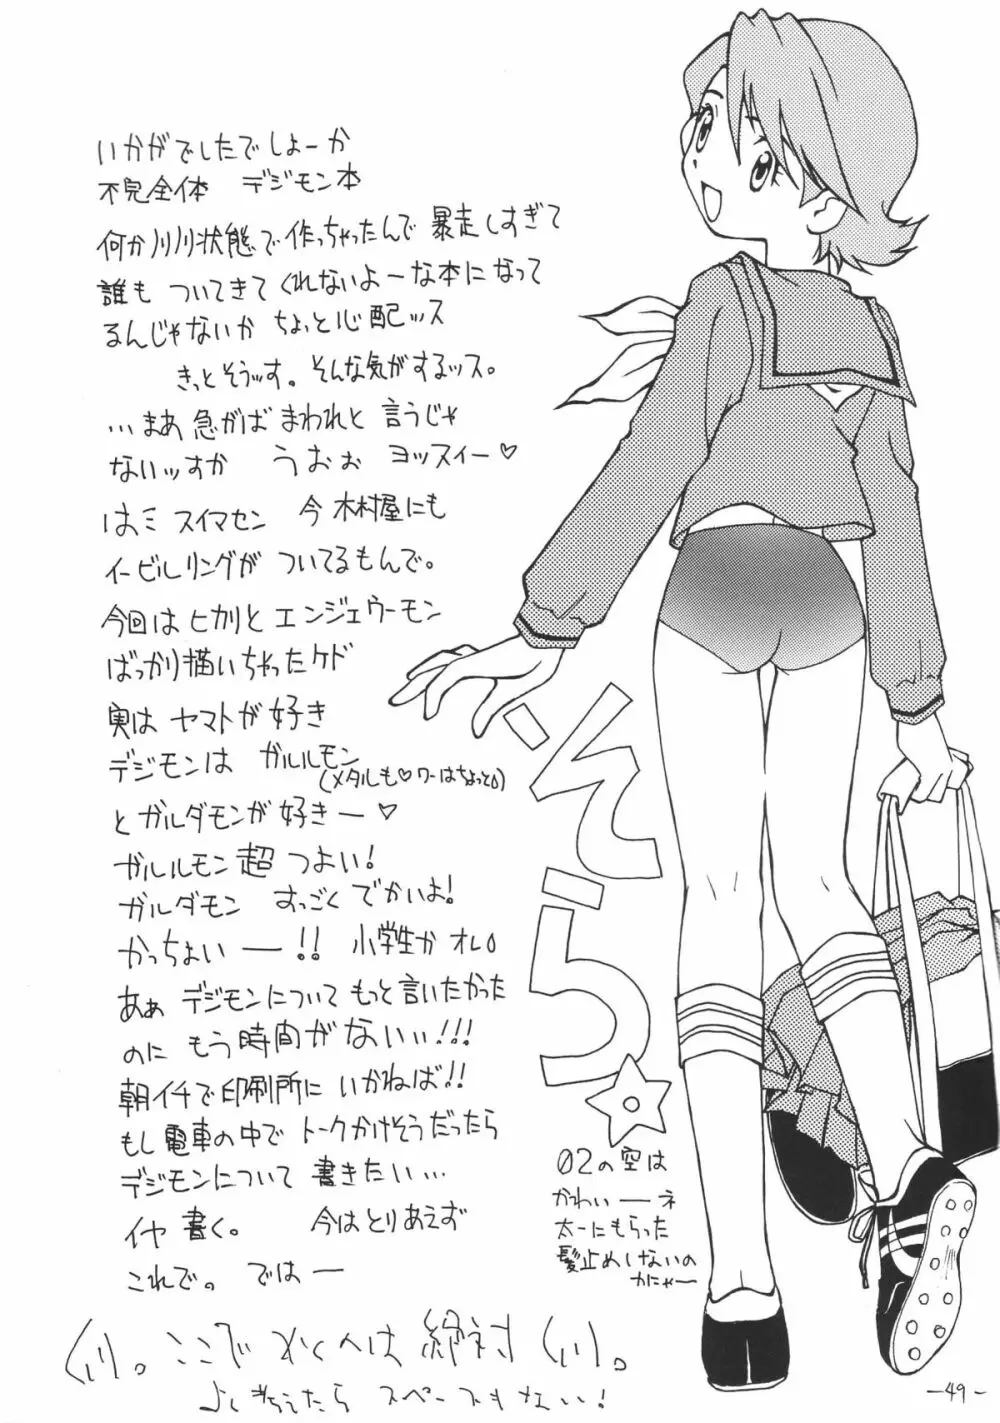 いかがでしたでしょーか
不完全体 デジモン本
何か川川状態で作っちゃったんで 暴走しすぎて
誰も ついてきてくれないよーな本になって
るんじゃないか ちょっと心配ッス
きっとそうッす。そんな気がするッス。
…まあ 急がば まわれと 言うじゃ
ないッすか うおぉ ヨッスィー♡
はミ スイマセン 今 木村屋にも
イービルリングが ついてるもんで。
今回は ヒカリと エンジェウーモン
ばっかり描いちゃったケド
実は ヤマトが 好き
デジモンは ガルルモン
(メタルも♡ワーはちょっと)
と ガルダモンが 好きー♡
ガルルモン 超 つよい!
ガルダモン すっごく でかいよ!
かっちょいー!! 小学生か オレ
あぁ デジモンについて もっと言いたかった
のに もう時間がないぃぃ!!!
朝イチで印刷所に いかねば!!
もし電車の中で トークかけそうだったら
デジモンについて 書きたい…
イヤ 書く。 今はとりあえず
これで。 ではー
そら☆
02の空は
かわいーネ
太一にもらった
髪止めしないの
かにゃー
スペースもない!
-49-